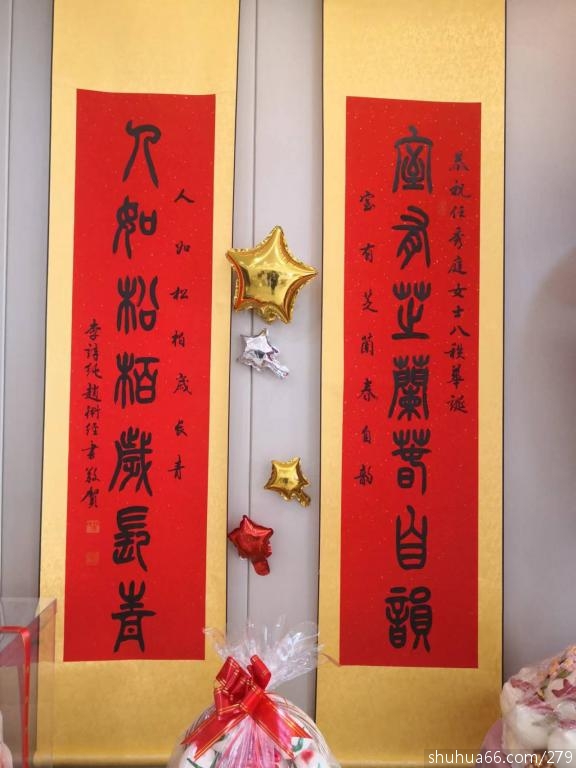 恭祝任秀庭女士八秩華誕
室有芝蘭春自韵
室有芝蘭春自韻
人如松柏歲長青
人如松柏歲長青
李詩純趙衡经書敬賀
shuhua66.com/279